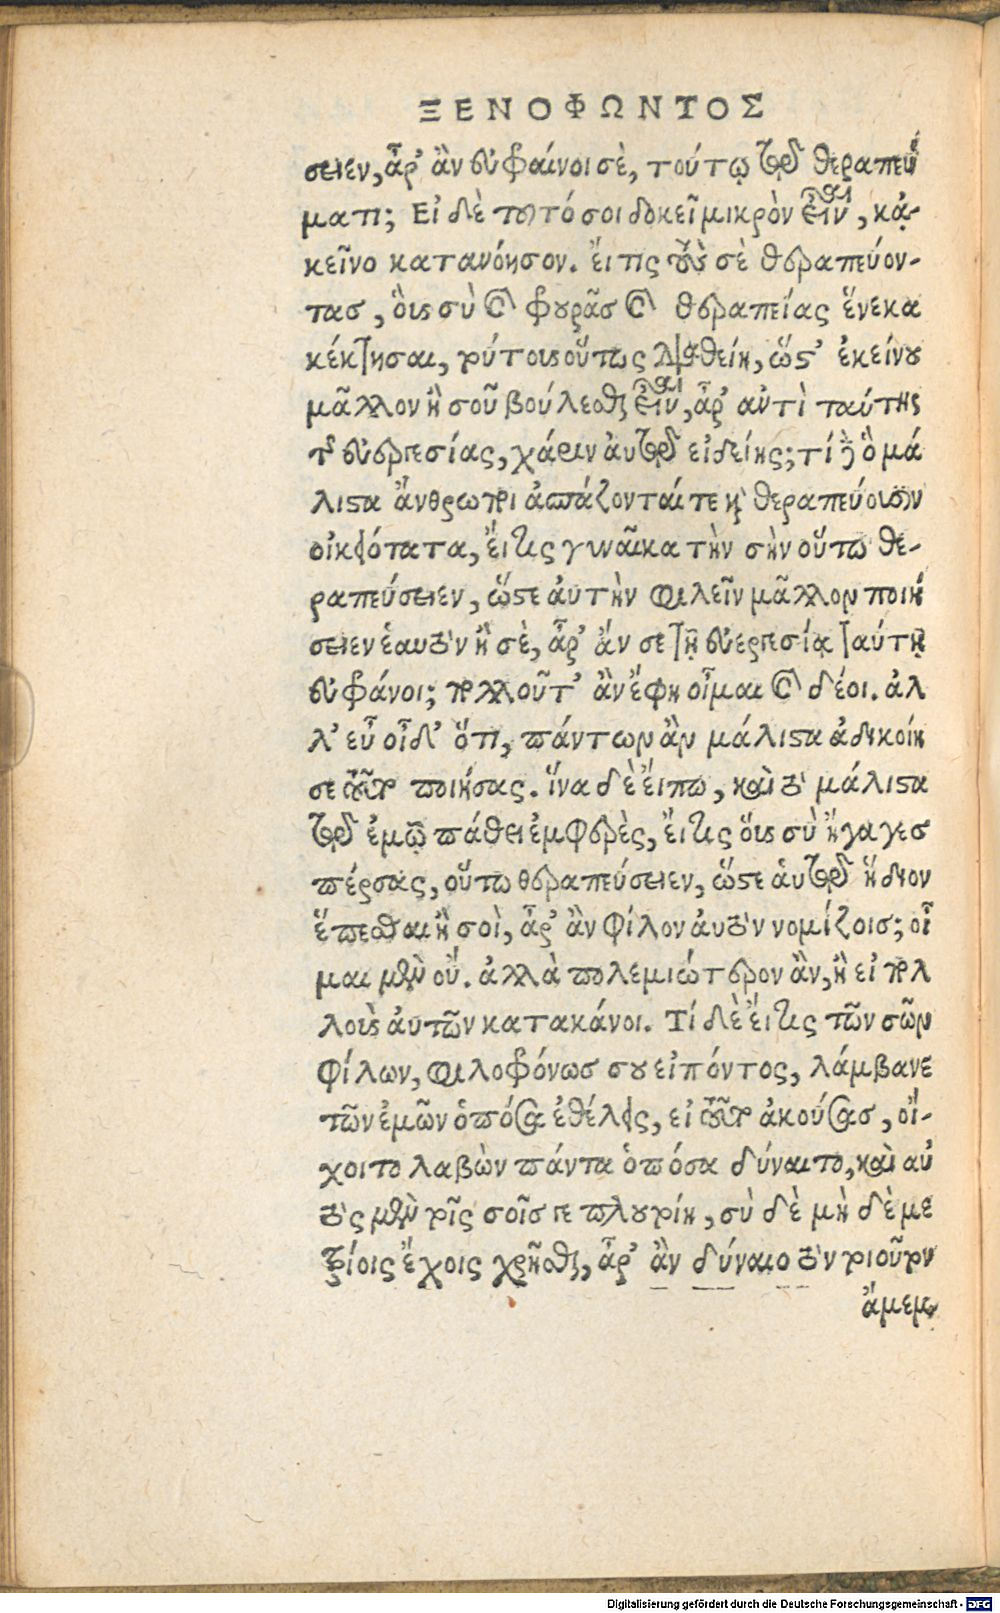 ΞΕΝΟΦΩΝΤΟΣ
σειεν, ἆρ' ἂν εὐφραίνοι σὲ, τούτῳ τῷ θεραπεύ
ματι; Εἰ δὲ τοῦτό σοι δοκεῖ μικρὸν εἶναι, κἀ-
κεῖνο κατανόησον. ἔι τις τοὺς σὲ θεραπεύον-
τασ, ὃυς σὺ καὶ φρουρᾶς καὶ θεραπείας ἕνεκα
κέκτησαι, τούτους οὕτως διαθείη, ὥστ' ἐκείνου
μᾶλλον ἢ σοῦ βούλεσθαι εἶναι, ἆρ' ἀντὶ ταύτης
τῆς εὐεργεσίας, χάριν ἀυτῷ εἰδείης; τί δὲ ὃ μά
λιστα ἄνθρωποι ἀσπάζονταί τε καὶ θεραπεύουσιν
οἰκειότατα, ἔι τις γυναῖκα τὴν σὴν οὕτω θε-
ραπεύσειεν, ὥστε ἀυτὴν φιλεῖν μᾶλλον ποιή
σειεν ἑαυτὸν ἢ σὲ, ἆρ' ἄν σε τῇ εὐεργεσίᾳ ταύτῃ
εὐφράνοι; πολλοῦ γ' ἂν ἔφη οἶμαι καὶ δέοι. ἀλ
λ' εὖ οἶδ' ὅτι, πάντων ἂν μάλιστα ἀδικοίη
σε τοῦτο ποιήσας. ἵνα δὲ ἔιπω, καὶ τὸ μάλιστα
τῷ ἐμῷ πάθει ἐμφερὲς, ἔι τις ὅυς σὺ ἤγαγεσ
πέρσας, οὕτω θεραπεύσειεν, ὥστε ἀυτῷ ἥδιον
ἕπεσθαι ἢ σοὶ, ἆρ' ἂν φίλον ἀυτὸν νομίζοισ; οἶ
μαι μὲν οὔ. ἀλλὰ πολεμιώτερον ἂν, ἢ εἰ πολ
λοὺς ἀυτῶν κατακάνοι. Τί δὲ ἔι τις τῶν σῶν
φίλων, φιλοφρόνωσ σου εἰπόντος, λάμβανε
τῶν ἐμῶν ὁπόσα ἐθέλεις, εἰ τοῦτο ἀκούσασ, οἴ-
χοιτο λαβὼν πάντα ὁπόσα δύναιτο, καὶ αὐ
τὸς μὲν τοῖς σοῖσ γε πλουτοίη, σὺ δὲ μὴ δὲ με
τρίοις ἔχοις χρῆσθαι, ἆρ' ἂν δύναιο τὸν τοιοῦτον
ἄμεμ
Digitalisierung gefördert durch die Deutsche Forschungsgemeinschaft - DFG